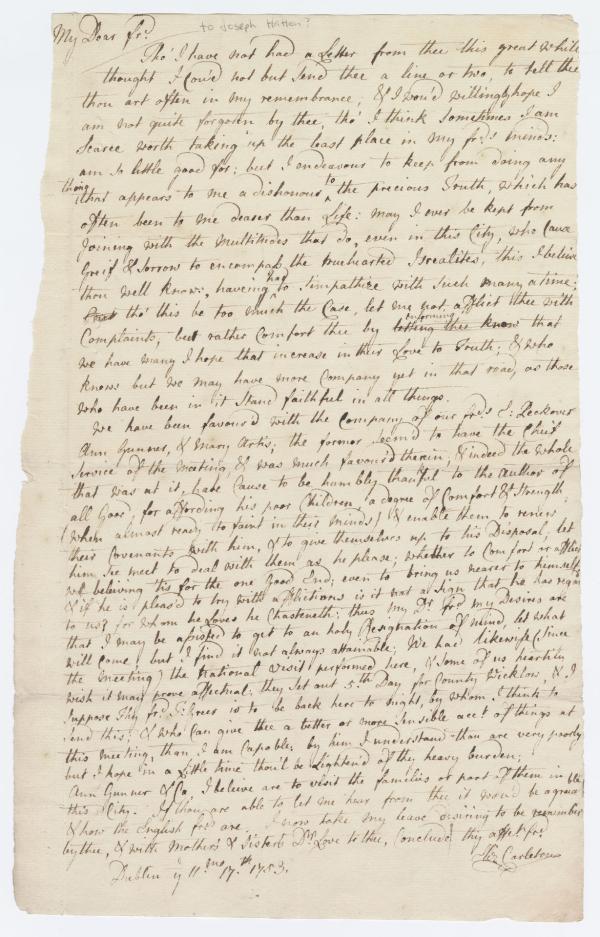 to Joseph Hatton?
My Dear Frd.
Tho' I have not had a Letter from thee this great while
thought I cou'd not but Send thee a line or two, to tell thee
thou art often in my remembrance, & I wou'd willingly hope I
am not quite forgoten by thee, tho' I think Sometimes I am
Scarce worth taking up the least place in my frds minds:
am So little good for: but I endeavour to keep from doing any
thing
that appears to me a dishonour to the precious Truth, which has
often been to me dearer than Life: may I ever be kept from
Joining with the Multitudes that do, even in this City, who Cause
Greif & Sorrow to encompass the truehearted Israelites, this I believe
thou well know:, haveing had to Simpathize with Such many a time;
tho' this be too much the Case, let me not afflict thee with
Complaints, but rather Comfort thee by informing thee that
we have many I hope that increase in their Love to Truth; & who
knows but we may have more Company yet in that road, as those
who have been in it Stand faithful in all things.
We have been favour'd with the Company of our frds E: Peckover
Ann Gunner, & Mary Artis; the former Seem'd to have the Chief
Service of the Meeting & was much favour'd therein, & indeed the whole
that was at it, have Cause to be humbly thankful to the Author of
all Good, for affording his poor Children a degree of Comfort & Strength
(when almost ready to faint in their minds) & enable them to renew
their Covenants with him, & to give themselves up to his Disposal, let
him See meet to deal with them as he please; whether to Comfort or afflict
beliveing tis for the one Good End; even to bring us nearer to himself
& if he is pleas'd to try with afflictions is it not a Sign that he has regard
to us? for whom he Loves he Chasteneth: thus my Dr. frd my Desires are
that I may be assisted to get to an holy Resignation of mind, let what
will come, but I find it not always attainable; We had likewise (Since
the meeting) the National visit performed here, & Some of us heartily
wish it may prove affectual: they Set out 5th Day for County Wicklow, & I
Suppose thy frd is to be back here to Night, by whom I think to
Send this: & who Can give thee a better or more Sensible acct. of things at
this meeting, than I am Capable; by him I understand thou are very poorly
but I hope in a Little time thou'l be Lightend of thy heavy burden;
Ann Gunner & Co. I beleive are to visit the families or part of them in
this City. If thou are able to let me hear from thee it wou'd be agreeable
& how the English frds are. I now take my leave desiring to be remember'd
by thee, & with Mothers & Sisters Dr. Love to thee, Conclude thy affect. frd
Carleton
Dublin ye 11mo 17th 1753.